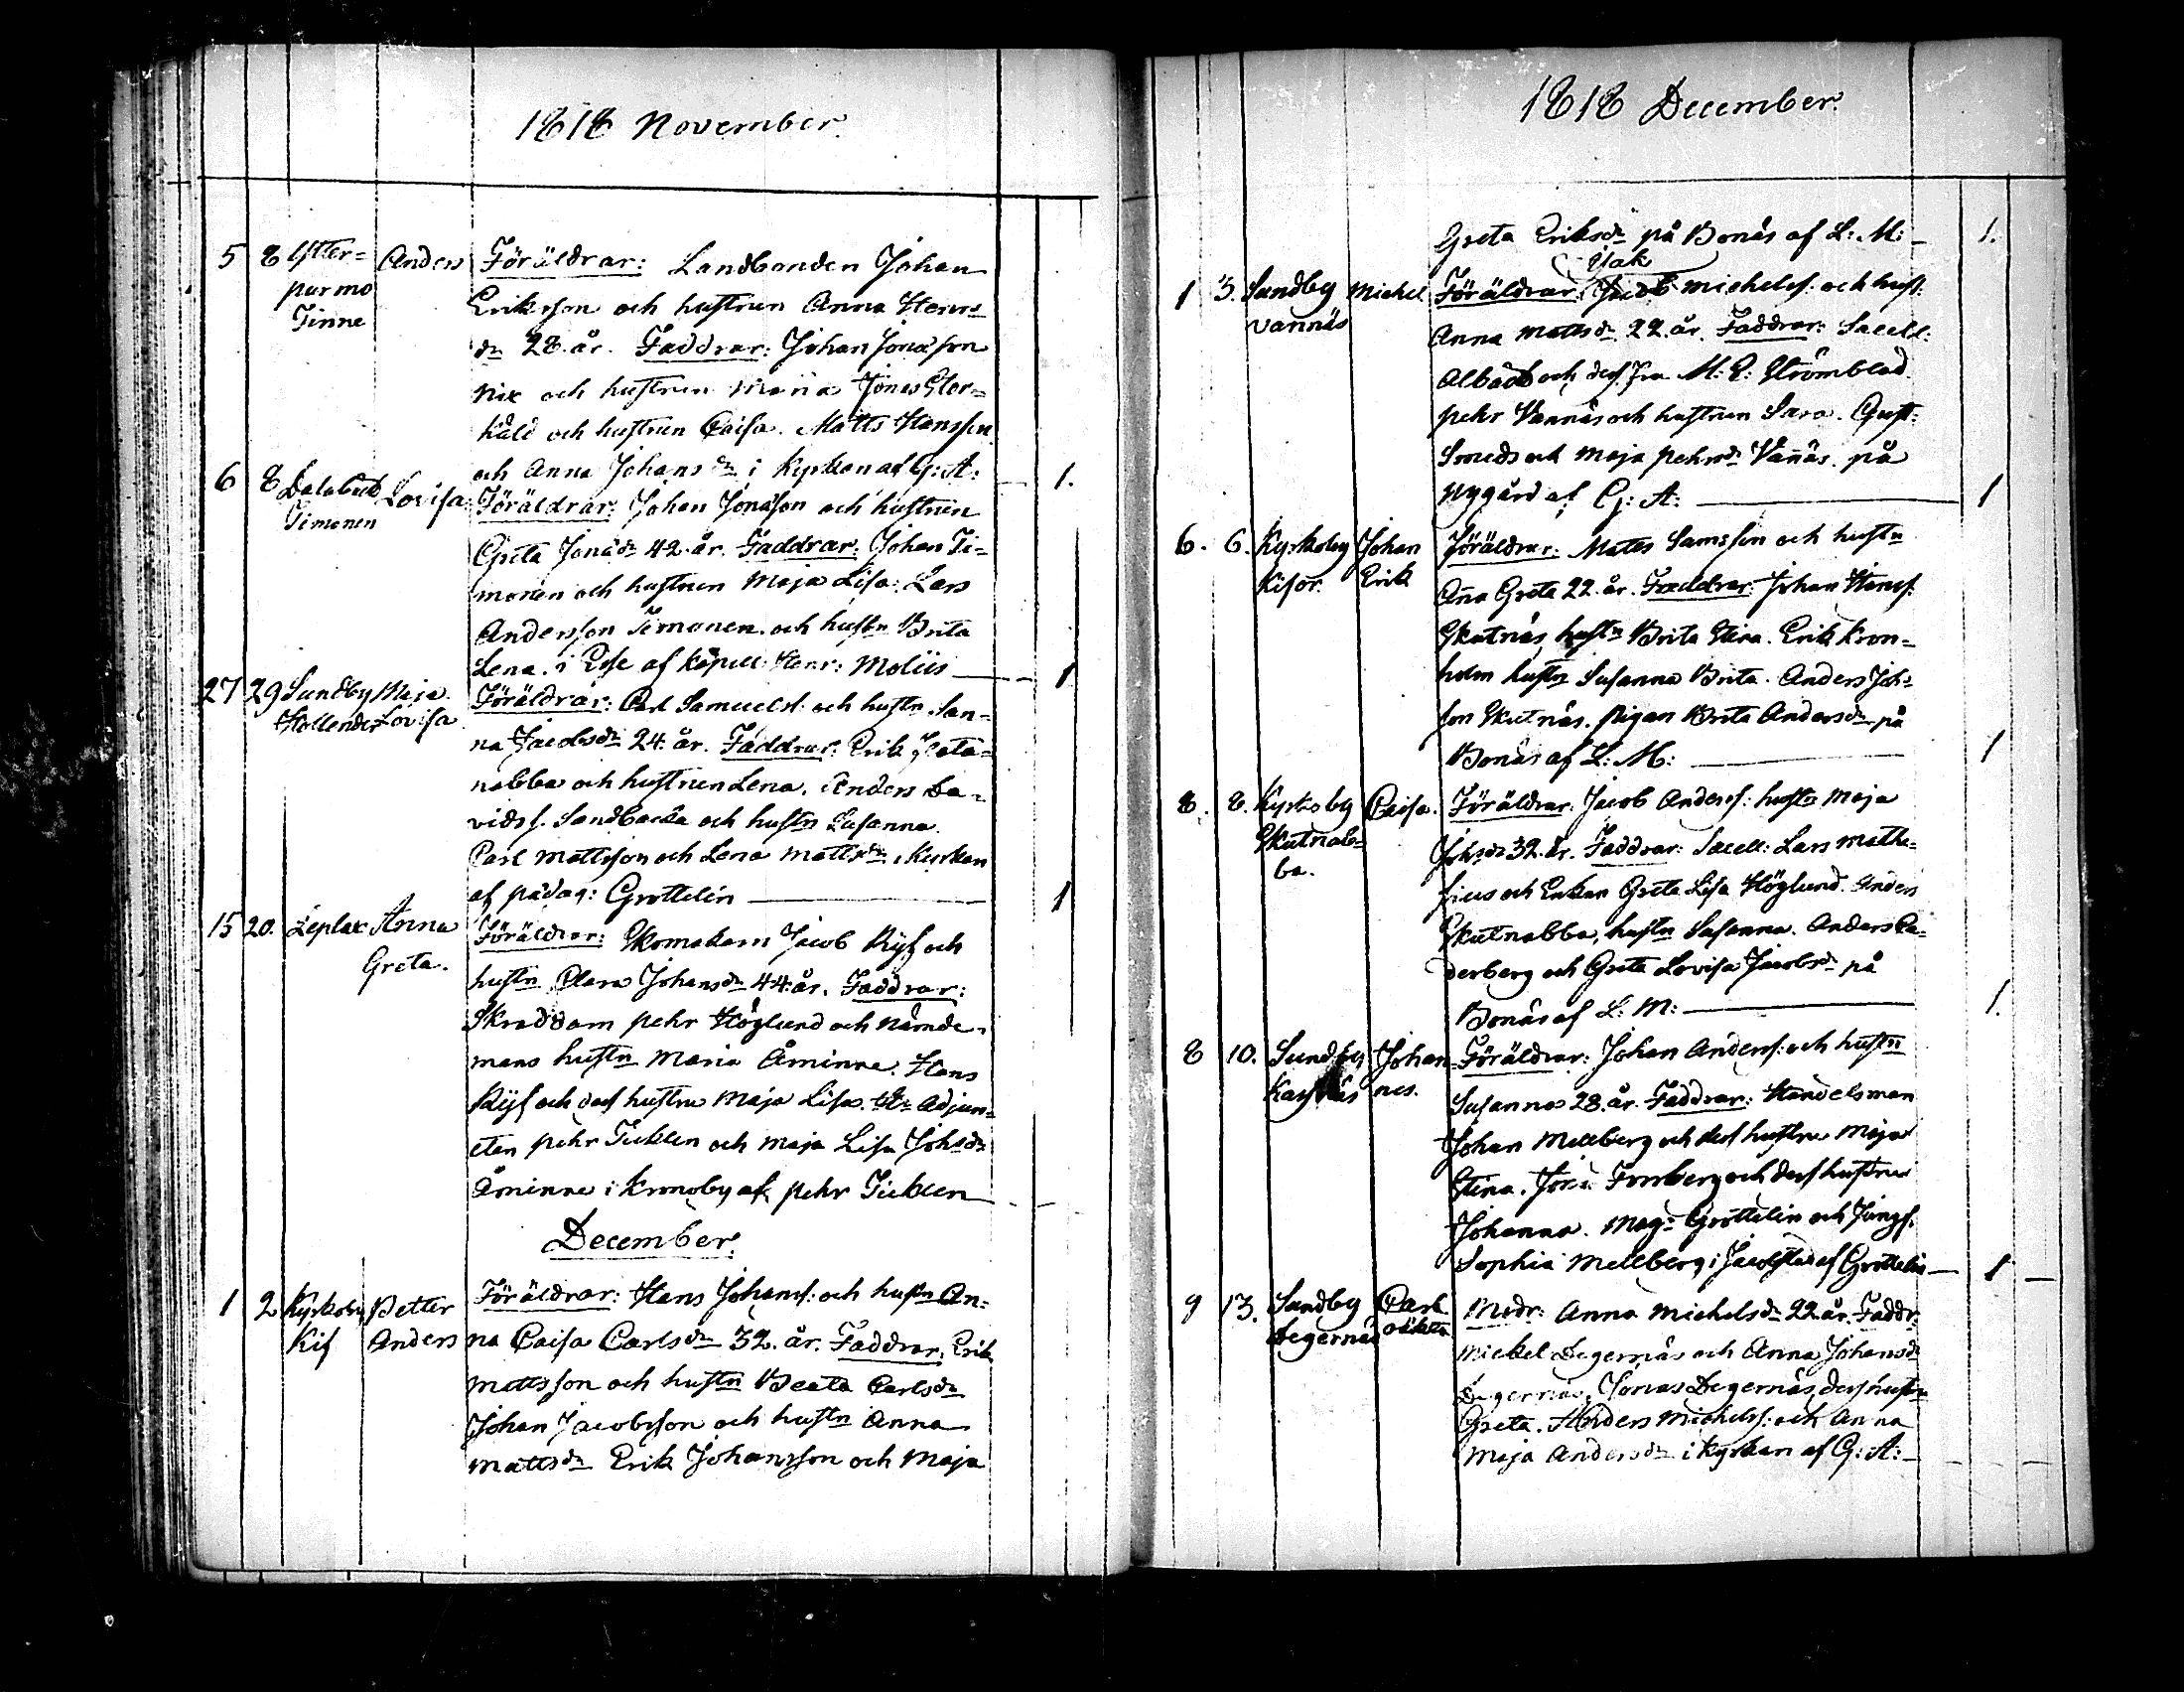 1818 November.
5 8 Ytter= Anders Föräldrar: Landbonden Johan
purmo Eriksson och hustrun Anna Henrs
Tinne dr 28. år. Faddrar: Johan Jonasson
Nix och hustrun Maria Jonas Stor=
håld och hustrun Caisa. Matts Hansson
och Anna Johans dr i Kyrkan af G: A: 1.
6 8 Dalabäck Lovisa Föräldrar: Johan Jonasson och hustrun
Timonen Greta Jonsdr 42. år. Faddrar: Johan Ti=
monen och hustrun Maja Lisa. Lars
Andersson Timonen och hustn Brita
Lena. i Esse af Kapell: Henr: Moliis 1
27 29 Sundby Maja Föräldrar: Carl Samuels: och hustn San=
Hollender Lovisa na Jacobsdr 24. år. Faddrar: Erik
nabba och hustrun Lena. Anders Da=
vidss. Sandbacka och hustn Susanna.
Carl Mattsson och Lena Mattsdr i Kyrkan
af pädag: Grottelin 1
15 20. Leplax Anna Föräldrar: Skomakarn Jacob Ryss och
Greta. hustn Clara Johansdr 44. år. Faddrar:
Skraddarn pehr Höglund och Nämde=
mans hustn Maria Åminne. Hans
Ryss och dess hustru Maja Lisa. Hr Adjun=
cten pehr Ticklen och Maja Lisa Johsdr
Åminne i Kronoby af pehr Ticklen
December.
1 2 Kyrkoby Petter Föräldrar: Hans Johans: och hustn An=
Kis Anders na Caisa Carlsdr 32. år. Faddrar. Erik
Mattsson och hustn Beata Carlsdr
Johan Jacobsson och hustn Anna
Mattsdr Erik Johansson och Maja
1818 December.
Greta Eriksdr på Bonäs af L: M: 1.
Jak
1 3. Sundby Michel Föräldrar: Michels: och hust:
Vannäs Anna Mattsdr. 22. år. Faddrar: Sacell:
och dess Fru M: E: Strömblad.
pehr Vannäs och hustrun Sara. Gust:
och Maja pehrsdr Vañäs. på
Nygård af G: A: 1
6. 6. Kyrkoby Johan Föräldrar: Matts Samsson och hustn
Kisor. Erik Aña Greta 22. år. Faddrar: Johan Hanss.
Skutnäs, hustn Brita Stina. Erik Kron=
holm hustn Susanna Brita. Anders Joh=
son Skutnäs. pigan Brita Andersdr på
Bonäs af L: M: 1
8. 8. Kyrkoby Caisa. Föräldrar: Jacob Anderss: hustn Maja
Skutnab= Johsdr 32. år. Faddrar: Sacell: Lars Mathe=
ba. sius och Enkan Greta Lisa Höglund. Anders
Skutnabba, hustn Susanna. Anders Ce=
derberg och Greta Lovisa Jacobsdr på
Bonäs af L: M: 1.
8 10. Sundby Johan= Föräldrar: Johan Anders: och hustn
nes. Susanna 28. år. Faddrar: Handelsman
Johan Mellberg och dess hustru Maja
Stina. och dess hustru
Johanna. Magr Grottelin och Jungf.
Sophia Mellberg, i Jacobstad af Grottelin 1
9 13. Sundby Carl Modr: Anna Michelsdr 22 år. Faddr:
Degernäs oäkta Mickel Degernäs och Anna Johansdr
Degernäs. Jonas Degernäs, dess hustru
Greta. Anders Michelss: och Anna
Maja Andersdr i Kyrkan af G: A: